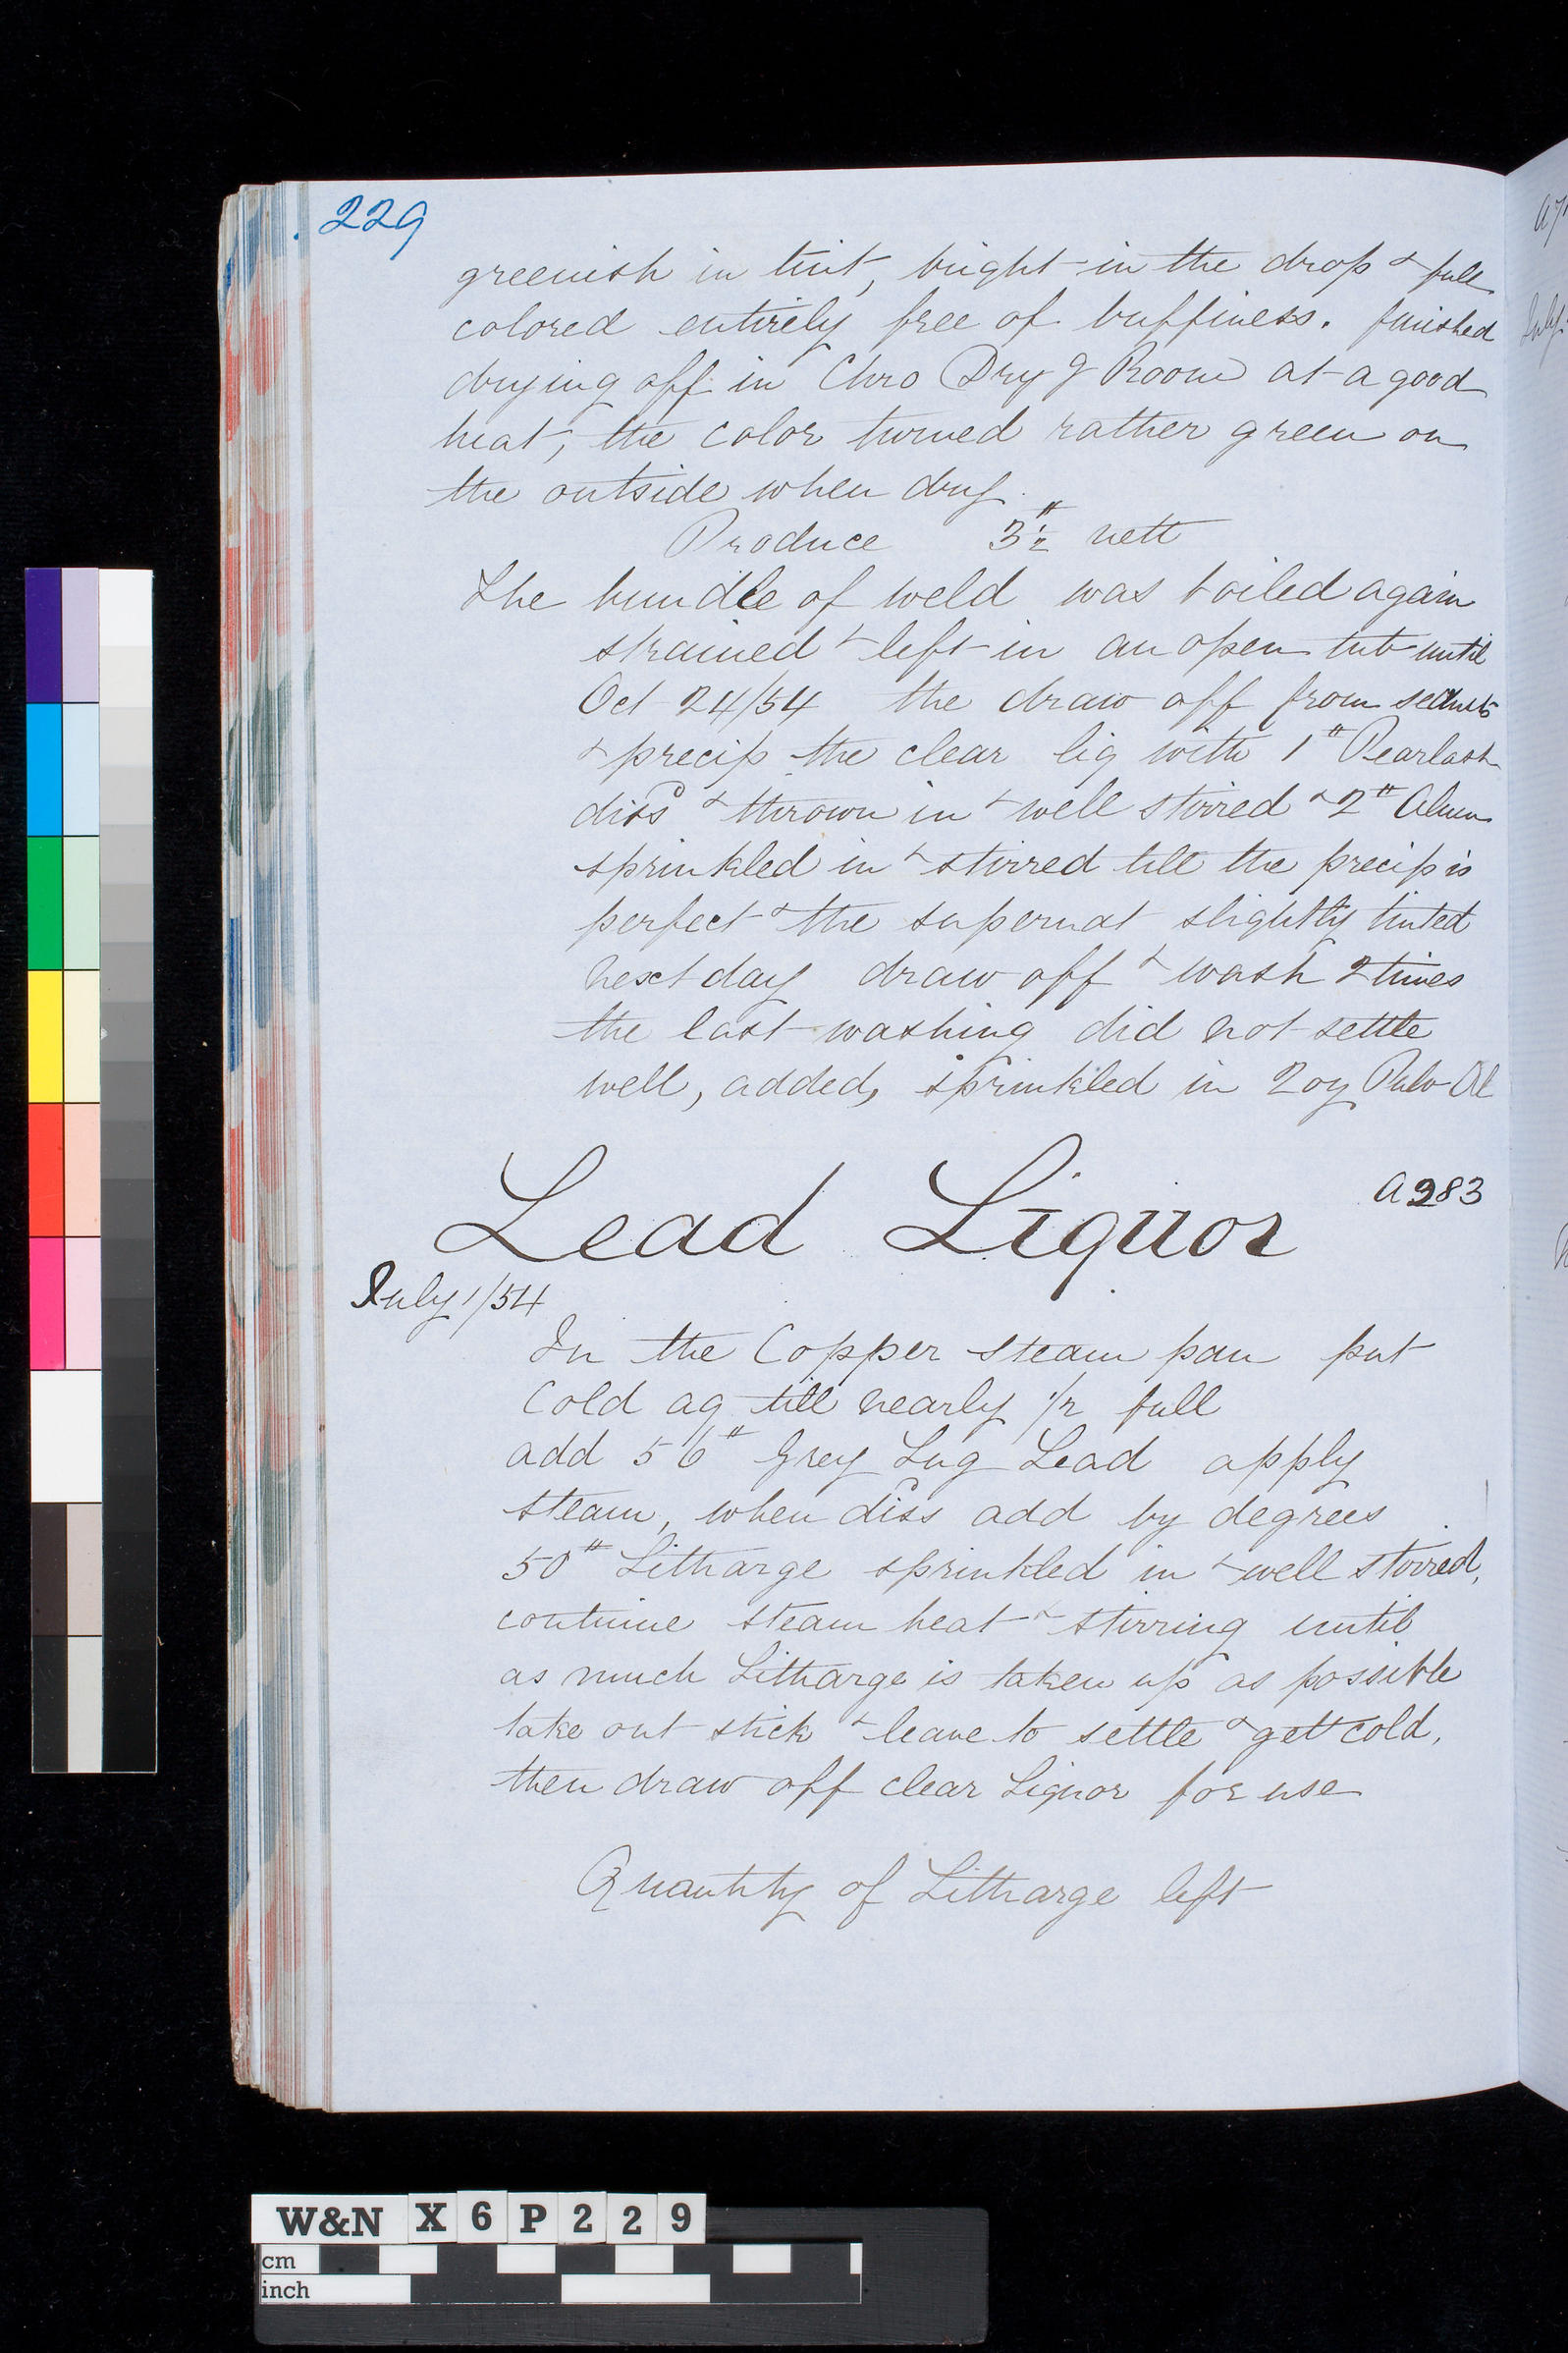 229
greenish in tint, bright in the drop & full
colored entirely free of buffiness. finished
drying off in Chro Dryg Room at a good
heat, the color turned rather green on
the outside when dry.
Produce 3½# nett
The bundle of weld was boiled again
strained & left in an open tub until
Oct 24/54 the draw off from
& precip the clear liq with 1# Pearlash
dissd & thrown in & well stirred & 2# Alum
sprinkled in & stirred till the precip is
perfect & the supernat slightly tinted
next day draw off & wash 2 times
the last washing did not settle
well, added, sprinkled in 2oz Pulv Al
A283
Lead Liquor
July 1/54
In the Copper steam pan put
Cold aq till nearly 1/2 full
add 56# Grey Sug Lead apply
steam, when diss add by degrees
50# Litharge sprinkled in & well stirred,
continue steam heat & stirring until
as much Litharge is taken up as possible
take out stick & leave to settle & get cold,
then draw off clear Liquor for use
Quantity of Litharge left
W&N X 6 P 2 2 9
cm
inch